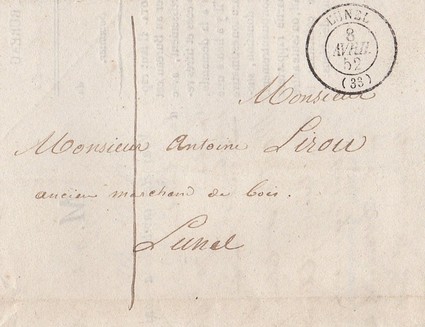 LUNEL
8
AVRIL
52
(33)
Monsieur
Monsieur Antoine Lirou
ancien marchand de bois.
Lunel